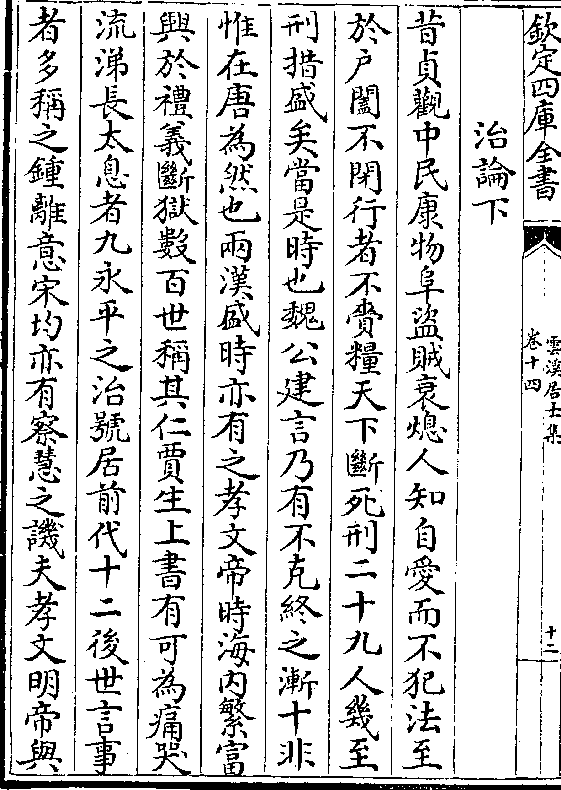 欽定四庫全書
雲溪居士集
卷十四
十二
治論下
昔貞觀中民康物阜盜賊衰熄人知自愛而不犯法至
於户闔不閉行者不賫糧天下斷死刑二十九人幾至
刑措盛矣當是時也魏公建言乃有不克終之漸十非
惟在唐為然也兩漢盛時亦有之孝文帝時海内繁富
興於禮義斷獄數百世稱其仁賈生上書有可為痛哭
流涕長太息者九永平之治號居前代十二後世言事
者多稱之鍾離意宋均亦有察慧之譏夫孝文明帝與